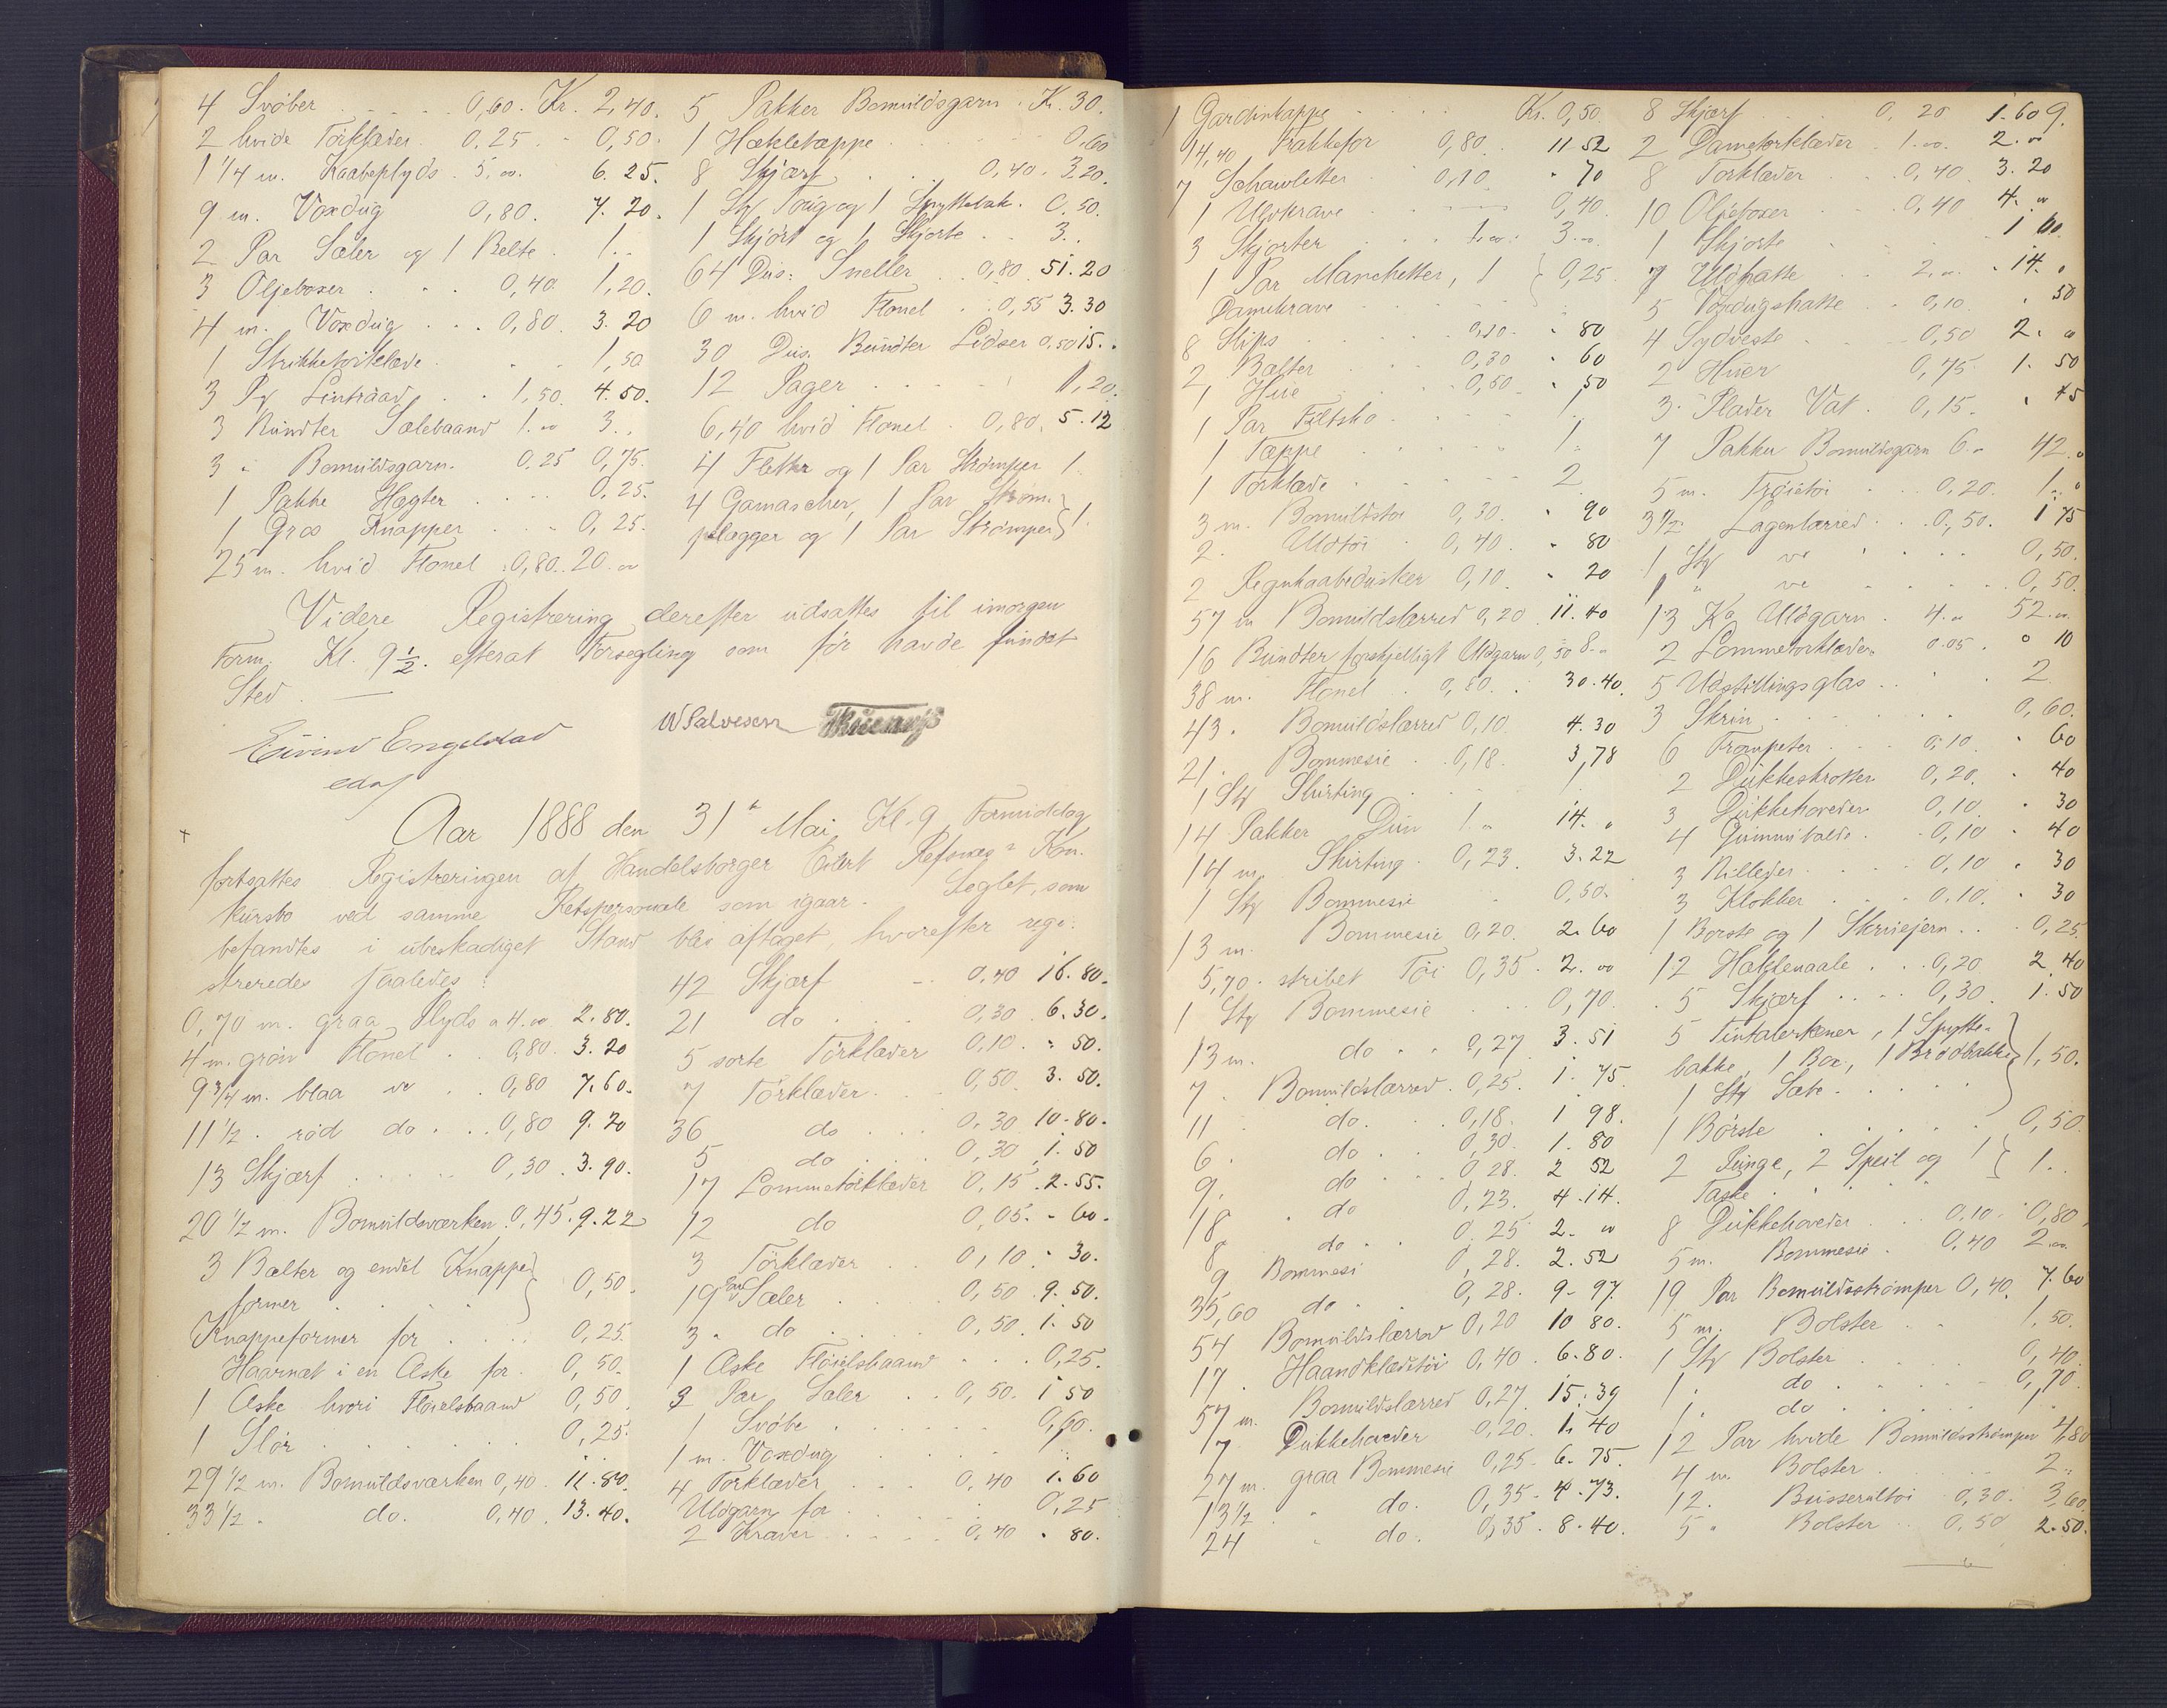 4 Svøber . . . 0,60. Kr. 2,40.
2 hvide Törklæder. 0,25 - 0,50.
1 1/4 m. Kaabeplyds. 5.00. 6.25.
9 m. Voxdug 0,80. 7.20.
2 Par Sæler og 1 Belte. 1..
3 Oljeboxer . . . 0,40. 1,20.
4 m. Voxdug . . . 0,80. 3.20
1 Strikketörklæde . . 1,50
3 Pg Lintraad . . 1,50. 4.50.
3 Bundter Sælebaand 1.00 3..
3 " Bomuldsgarn. 0.25 0,75.
1 Pakke Hægter . . . 0,25.
1 Gros Knapper . . . 0,25.
25 m. hvid Flonel . 0,80. 20.00
5 Pakker Bomuldsgarn . Kr. 30.
1 Hækletæppe . . . 0,60
8 Skjærf . . . 0,40. 3.20.
1 Sty Töig og 1 Spyttebak. 0.50.
1 Skjört og 1 Skjorte . . 3..
64 Dus: Sneller . 0,80 51.20
6 m. hvid Flonel . 0,55 3.30
30 Dus. Bundter Lidser 0,50 15..
12 Pager . . . 1,20.
6,40 hvid Flonel . 0,80. 5.12
4 Filtker og 1 Par Strømper 1.
4 Gamascher, 1 Par Ström-
pelægger og 1 Par Strømper } 1.
Videre Registrering derefter udsattes til imorgen
Form. Kl. 9 1/2. efterat Forsegling som før havde fundet
Sted. —
Eivind Engelstad
edsf
W Salvesen
Aar 1888 den 31te Mai Kl. 9 Formiddag
fortsattes Registreringen af Handelsborger Refsnæs's Kon-
kursbo ved samme Retspersonale som igaar. Seglet, som
befandtes i ubeskadiget Stand blev aftaget, hvorefter regi-
streredes saaledes:
0,70 m. graa Plyds a 4.00 2.80.
4 m. grøn Flonel . . 0,80. 3.20
9 3/4 m. blaa do . . 0,80 7.60.
11 1/2 . röd do . . . 0,80 9.20
13 Skjærf . . . . 0,30. 3.90.
20 1/2 m. Bomuldsværken. 0,45. 9.22
3 Bælter og endel Knappe-
former . . . . } 0,50.
Knappeformer for . . . 0,25.
Haarnæt i en Æske for . 0,50.
1 Æske hvori Fløielsbaand 0,50
1 Slör . . . . . 0,25.
29 1/2 m. Bomuldsværken 0,40. 11.80.
33 1/2 . do. 0,40. 13.40.
42 Skjærf - . 0,40 16.80.
21 do . . . 0,30. 6.30.
5 sorte Törklæder 0,10. " 50.
7 Törklæder . . 0,50. 3.50.
36 do . . . 0,30 10.80.
5 do . . . 0,30 1.50
17 Lommetörklæder 0,15. 2.55.
12 do 0,05. " 60.
3 Törklæder . . 0,10 " 30.
19 Par Sæler . . . 0,50. 9.50.
3 " do . . . 0,50. 1.50
1 Æske Fløielsbaand . . . 0,25.
3 Par Sæler . . 0,50. 1 50
1 Svøbe . . . . . 0,60.
1 m. Voxdug . . . "
4 Törklæder . . . 0,40 1.60
Uldgarn for . . . . 0,25
2 Kraver . . . . 0,40 " 80.
1 Gardinkappe . . . . Kr. 0,50.
14,40 Frakkefor 0,80. 11 52
7 Schawletter . 0,10. " 70
1 Uldkrave . . . — 0,40.
3 Skjorter . . . 1.00. 3.00
1 Par Manchetter, 1
Damekrave . . . } 0,25.
8 Slips . . . 0,10. " 80
2 Bælter . . . 0,30 " 60
1 Hue . . . 0,50. " 50
1 Par Filtsko . . . . 1.
1 Tæppe . . . . " 1.
1 Törklæde . . . . . 2
3 m. Bomuldstøi 0,30. " 90
2. Uldtøi . 0,40. " 80
2 Regnkaabeduske 0,10. " 20
57 m Bomuldslærred 0,20 11.40
16 Bundter forskjelligt Uldgarn 0,50 8..
38 m. Flonel . . 0,80. . 30.40.
43 . Bomuldslærred 0,10. 4.30
21 . Bommesie . . 0,18. 3,78
1 Sty Skirting . . . . 1
14 Pakker Dun 1.. 14. "
14 m. Skirting . 0,23. 3.22
1 Sty Bommesie . 0,50.
13 m. Bommesie 0,20. 2.60
5,70 . stribet Töi 0,35. 2.00
1 Sty Bommesie . . . 0,70.
13 m. do . . 0,27 3.51
7 . Bomuldslærred 0,25. 1.75.
11 do. . . 0,18. 1 98.
6 . do . . 0,30. 1.80
9 . do . . . 0,28. 2 52
18 . do 0,23. 4.14.
8 do . . 0,25 2.00
9 Bommesi 0,28. 2.52
35,60 do . . 0,28. 9.97.
54 Bomuldslærred 0,20 10 80.
17 . Haandklædetøi 0,40. 6.80.
57 m. Bomuldslærred 0,27. 15.39
7 Dukkehoveder 0,20. 1.40
27 m. graa Bommesie 0,25. 6.75.
13 1/2 " do. 0,35. 4.73.
24 " do. 0,35. 8.40.
8 Skjærf . . . 0,20 1.60 9.
2 Dametörklæder . 1.00. 2.00
8 Törklæder . . . 0,40 3.20
10 Oljeboxer . . . 0,40 4.00
1 Skjorte . . . . 1 60.
7 Uldhatte . . . 2.00. 14. "
5 Voxdugshatte . . 0,10. " 50
4 Sydveste . . . 0,50 2. "
2 Huer 0,75. 1.50
3 . Plader Vat . 0,15. " 45
7 Pakker Bomuldsgarn 6.. 42.
5 m. Trøietøi . . 0,20. 1..
3 1/2 . Lagenlærred . . 0,50. 1 75
1 Sty do . . . . 0,50.
1 " do . . . . . 0,50.
13 Kg Uldgarn . 4.. 52..
2 Lommetörklæder 0.05. " 10
5 Udstillingsglas . . . 2
3 Skrin . . . . . 0,60.
6 Trompeter . . . 0,10. " 60
2 Dukkeskrotter 0,20. " 40
3 Dukkehoveder 0,10. " 30
4 Gummibolde . . 0,10 " 40
3 . . . 0,10 " 30
3 Klokker . . . 0,10. " 30
1 Börste og 1 Skruejern . . . 0,25.
12 Hæklenaale . . . 0,20 2,40
5 Skjærf . . . . 0,30. 1.50
5 Tintalerkener, 1 Spytte-
bakke, 1 Box, 1 Brødbakke
1 Sty Sæbe . . . . } 1,50.
1 Børste . . . . . 0,50.
2 Punge, 2 Speil og 1
Taske . . . . } 1..
8 Dukkehoveder . . 0,10. 0,80.
5 m. Bommesie . 0,40 2.00
19 Par Bomuldsstrømper 0,40. 7.60
5 m. Bolster . . 1,50.
1 Sty Bolster . . . 0,40.
1 . do . . . . 0,70.
1 . do . . . . 1.
12 Par hvide Bomuldsstrømper 4,80
4 m. Bolster . . . . 2..
12. Busserultøi 0,30. 3,60.
5 " Bolster 0,50 2.50.